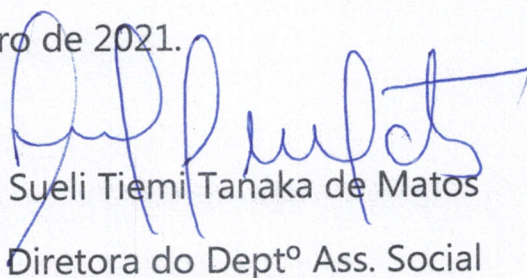 ro de 2021.
Sueli Tiemi Tanaka de Matos
Diretora do Deptº Ass. Social